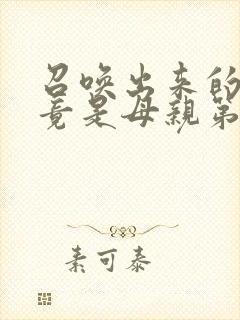 召唤出来的
竟是母亲第
素可泰